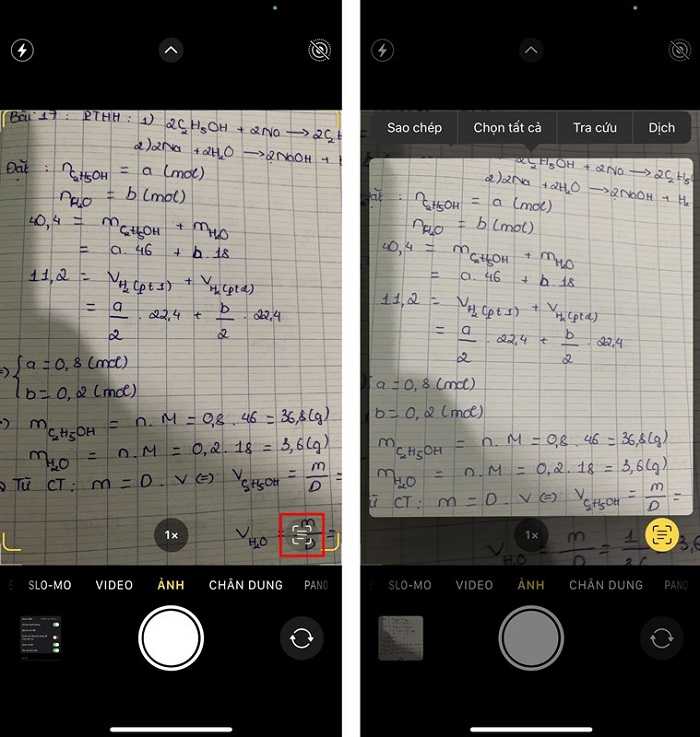 Bài 17 : PTHH : 1) 2C₂H₅OH + 2Na → 2C₂H
2) 2Na + 2H₂O → 2NaOH + H
Đặt : n C₂H₅OH = a (mol)
n H₂O = b (mol)
40,4 = m C₂H₅OH + m H₂O
= a . 46 + b . 18
11,2 = V H₂(pt1) + V H₂(pt2)
= a/2 . 22,4 + b/2 . 22,4
=> { a = 0,8 (mol)
b = 0,2 (mol)
m C₂H₅OH = n . M = 0,8 . 46 = 36,8 (g)
m H₂O = n . M = 0,2 . 18 = 3,6 (g)
Từ CT : m = D . V <=> V C₂H₅OH = m/D =
V H₂O = m/D =
1×
SLO-MO VIDEO ẢNH CHÂN DUNG PANO
Sao chép Chọn tất cả Tra cứu Dịch
2C₂H₅OH + 2Na → 2C₂H₅
2) 2Na + 2H₂O → 2NaOH + H₂
Đặt : n C₂H₅OH = a (mol)
n H₂O = b (mol)
40,4 = m C₂H₅OH + m H₂O
= a . 46 + b . 18
11,2 = V H₂(pt1) + V H₂(pt2)
= a/2 . 22,4 + b/2 . 22,4
{ a = 0,8 (mol)
b = 0,2 (mol)
m C₂H₅OH = n . M = 0,8 . 46 = 36,8 (g)
m H₂O = n . M = 0,2 . 18 = 3,6 (g)
Từ CT : m = D . V <=> V C₂H₅OH = m/D =
V H₂O = m/D =
1×
SLO-MO VIDEO ẢNH CHÂN DUNG PANO